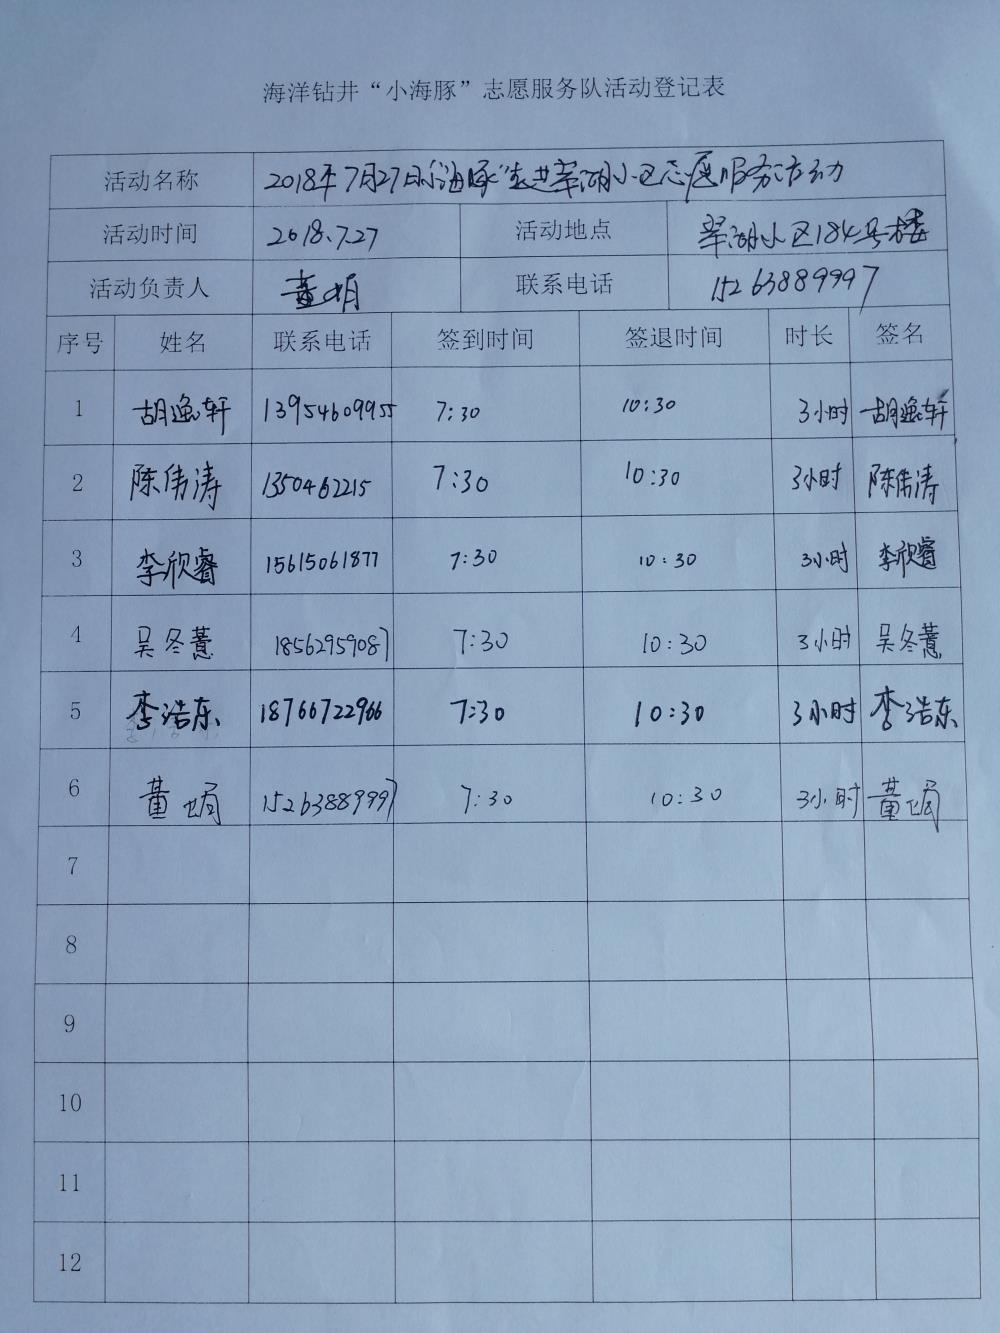 海洋钻井“小海豚”志愿服务队活动登记表
活动名称 2018年7月27日“小海豚”走进翠湖小区志愿服务活动
活动时间 2018.7.27 活动地点 翠湖小区184号楼
活动负责人 董娟 联系电话 15263889997
序号 姓名 联系电话 签到时间 签退时间 时长 签名
1 胡逸轩 13954609955 7:30 10:30 3小时 胡逸轩
2 陈伟涛 1350462215 7:30 10:30 3小时 陈伟涛
3 李欣睿 15615061877 7:30 10:30 3小时 李欣睿
4 吴冬薏 18562959087 7:30 10:30 3小时 吴冬薏
5 李浩东 18766722966 7:30 10:30 3小时 李浩东
6 董娟 15263889997 7:30 10:30 3小时 董娟
7
8
9
10
11
12